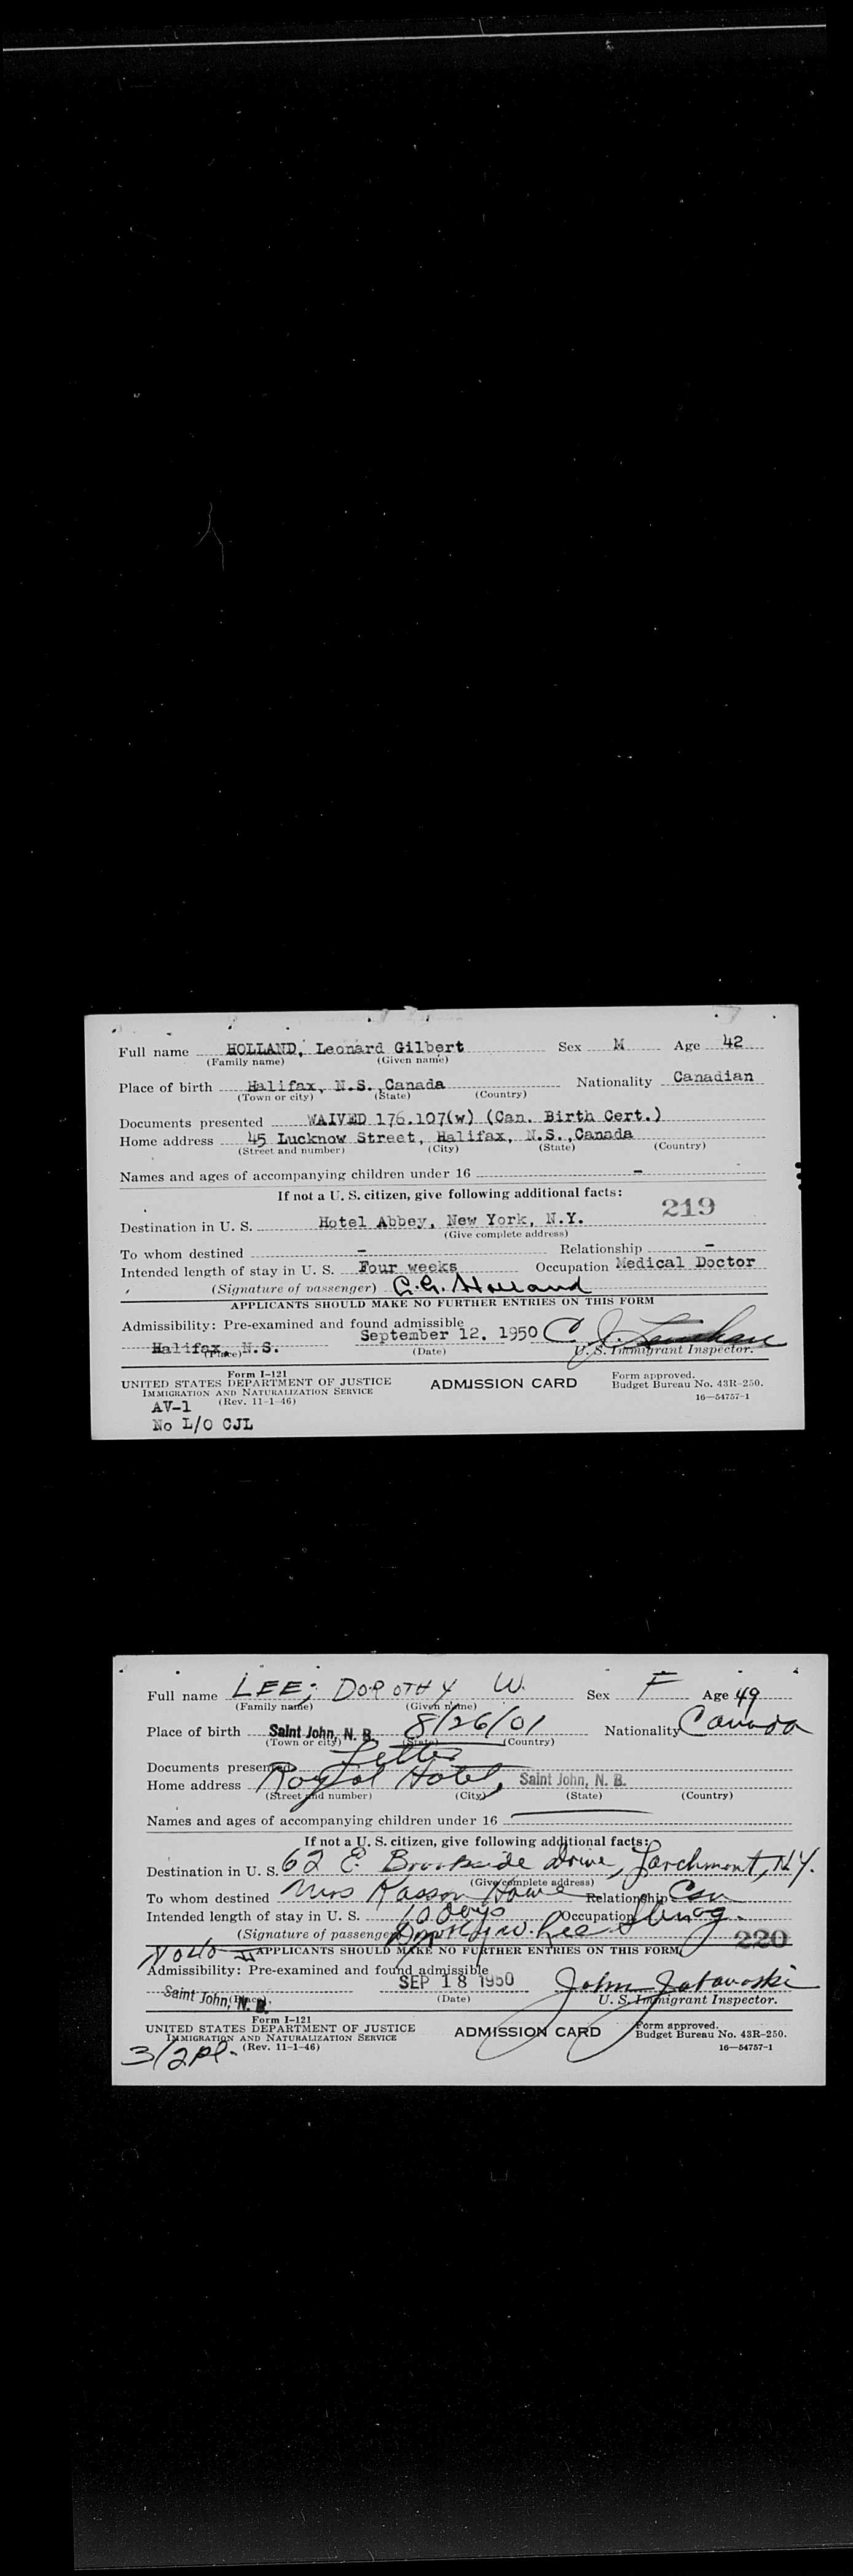 Full name HOLLAND, Leonard Gilbert Sex M Age 42
(Family name) (Given name)
Place of birth Halifax, N.S.,Canada Nationality Canadian
(Town or city) (State) (Country)
Documents presented WAIVED 176.107(w) (Can. Birth Cert.)
Home address 45 Lucknow Street, Halifax, N.S.,Canada
(Street and number) (City) (State) (Country)
Names and ages of accompanying children under 16 -
If not a U. S. citizen, give following additional facts:
219
Destination in U. S. Hotel Abbey, New York, N.Y.
(Give complete address)
To whom destined - Relationship -
Intended length of stay in U. S. Four weeks Occupation Medical Doctor
(Signature of passenger) Holland
APPLICANTS SHOULD MAKE NO FURTHER ENTRIES ON THIS FORM
Admissibility: Pre-examined and found admissible
Halifax, N.S. September 12, 1950 C. J.
(Place) (Date) U. S. Immigrant Inspector.
Form I-121 Form approved.
UNITED STATES DEPARTMENT OF JUSTICE ADMISSION CARD Budget Bureau No. 43R-250.
IMMIGRATION AND NATURALIZATION SERVICE
(Rev. 11-1-46) 16—54757-1
AV-1
No L/O CJL
Full name LEE; DOROTHY W. Sex F Age 49
(Family name) (Given name)
Place of birth Saint John, N. B. 8/26/01 Nationality Canada
(Town or city) (State) (Country)
Documents presented Letter
Home address Royal Hotel, Saint John, N. B.
(Street and number) (City) (State) (Country)
Names and ages of accompanying children under 16
If not a U. S. citizen, give following additional facts:
Destination in U. S. 62 E. Brookside Drive, Larchmont, N.Y.
(Give complete address)
To whom destined Mrs Kasson Howe Relationship
Intended length of stay in U. S. 10 days Occupation Stenog.
(Signature of passenger) Dorothy W. Lee
220
APPLICANTS SHOULD MAKE NO FURTHER ENTRIES ON THIS FORM
Admissibility: Pre-examined and found admissible
Saint John, N. B. SEP 18 1950 John
(Place) (Date) U. S. Immigrant Inspector.
Form I-121 Form approved.
UNITED STATES DEPARTMENT OF JUSTICE ADMISSION CARD Budget Bureau No. 43R-250.
IMMIGRATION AND NATURALIZATION SERVICE
(Rev. 11-1-46) 16—54757-1